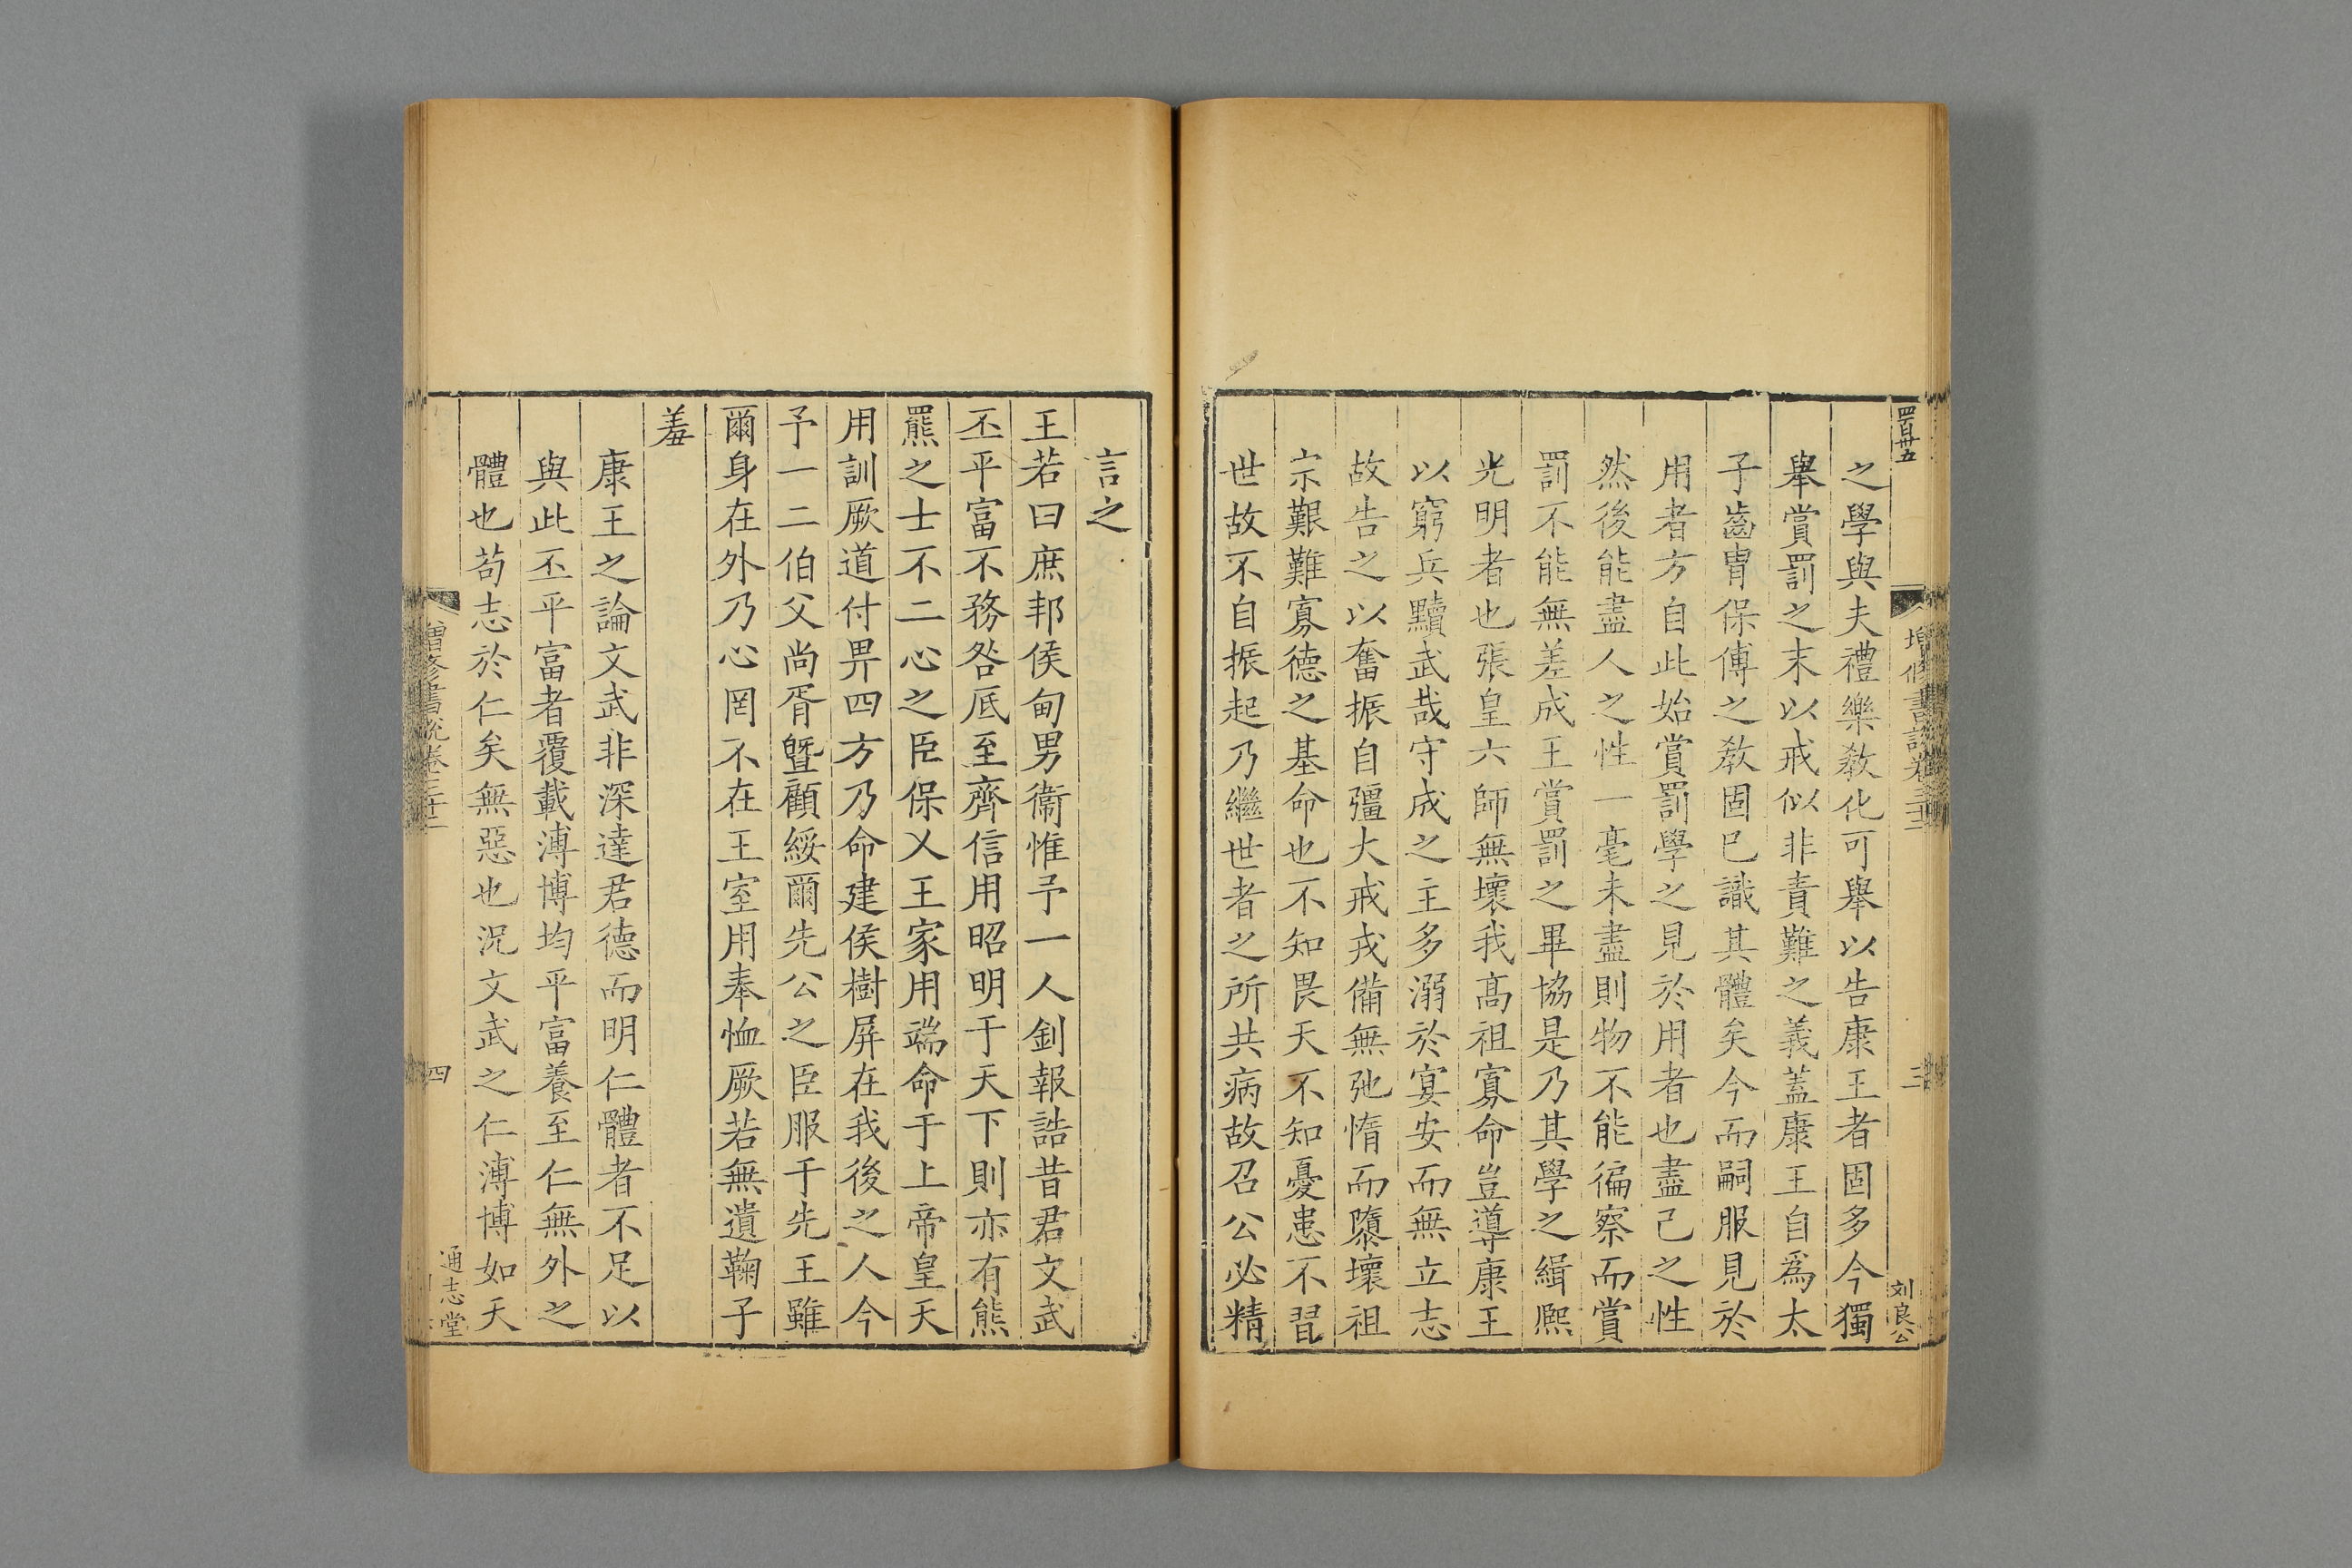 四百卅五
增修書說卷三十二
三
刘良公
之學與夫禮樂教化可舉以告康王者固多今獨
舉賞罰之末以戒似非責難之義蓋康王自爲太
子齒胄保傅之教固已識其體矣今而嗣服見於
用者方自此始賞罰學之見於用者也盡己之性
然後能盡人之性一毫未盡則物不能徧察而賞
罰不能無差成王賞罰之畢協是乃其學之緝熈
光明者也張皇六師無壞我髙祖寡命豈導康王
以窮兵黷武哉守成之主多溺於宴安而無立志
故告之以奮振自彊大戒戎備無弛惰而隳壞祖
宗艱難寡德之基命也不知畏天不知憂患不習
世故不自振起乃繼世者之所共病故召公必精
言之
王若曰庶邦侯甸男衞惟予一人釗報誥昔君文武
丕平富不務咎厎至齊信用昭明于天下則亦有熊
羆之士不二心之臣保乂王家用端命于上帝皇天
用訓厥道付畀四方乃命建侯樹屏在我後之人今
予一二伯父尚胥曁顧綏爾先公之臣服于先王雖
爾身在外乃心罔不在王室用奉恤厥若無遺鞠子
羞
康王之論文武非深達君德而明仁體者不足以
與此丕平富者覆載溥博均平富養至仁無外之
體也苟志於仁矣無惡也況文武之仁溥博如天
增修書說卷三十二
四
通志堂